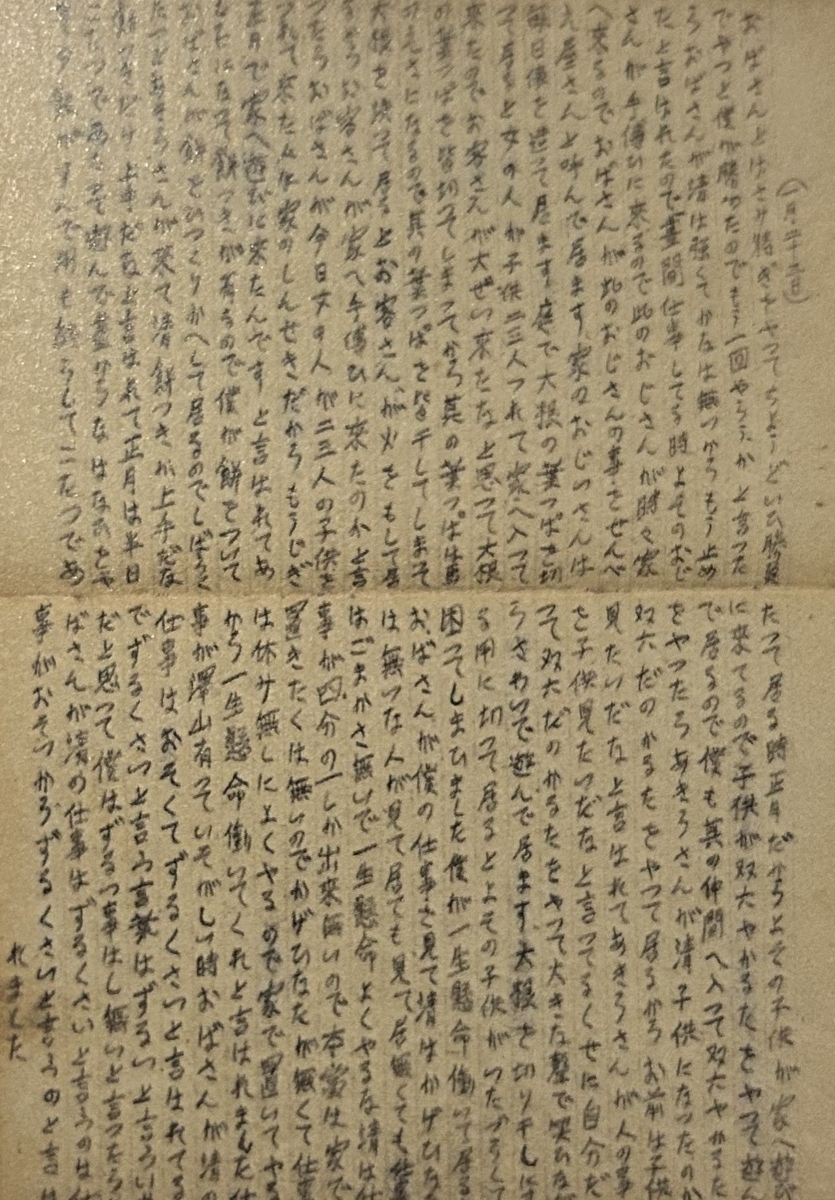 (一月二十二日)
おばさんとはさみ将ぎをやつてちようどいい勝負
でやつと僕が勝つたのでもう一回やらうか と言つた
らおばさんが清は強くてかなは無つからもう止め
たと言はれたので昼間仕事してる時よそのおじ
さんが手傳ひに来るので此のおじさんが時々家
へ来るのでおばさんが此のおじさんの事をせんべ
え屋さんと呼んで居ます、家のおじいさんは
毎日俵を造って居ます、庭で大根の葉つぱを切
て居ると女の人が子供二三人つれて家へ入って
来たのでお客さんが大ぜい来たなと思つて大根
の葉つぱを皆切つてしまつてから其の葉つぱは馬
のえさになるので其の葉つぱを皆干してしまつて
大根を洗って居るとお客さんが火をもして居
るからお客さんが家へ手傳ひに来たのかと言
つたらおばさんが今日女の人が二三人の子供を
つれて来た人は家のしんせきだからもうじき
正月で家へ遊びに来たんです と言はれてあ
したになって餅つきが有るので僕が餅をついて
おばさんが餅をひつくりかへして居るのでしばらく
たつとあきらさんが来て清餅つきが上手だな
餅つきだけ上手だなと言はれて正月は半日
こたつであたって遊んで昼からなはなひをや
夕飯がすんで用も終らしてこたつであ
たって居る時正月だからよその子供が家へ遊び
に来てるので子供が双六やかるたをやって遊ん
で居るので僕も其の仲間へ入って双六やかるた
をやつたらあきらさんが清子供になつたのか
双六だのかるたをやつて居るから お前は子供
見たいだなと言はれてあきらさんが人の事
を子供見たいだなと言つてるくせに自分だ
つて双六だのかるたをやつて大きな聲で笑ひな
らさわいで遊んで居ます、大根を切り干しにす
る用に切つて居るとよその子供がいたづらして
困つてしまひました僕が一生懸命働いて居る
おばさんが僕の仕事を見て清はかげひなた
は無いな人が見て居ても見て居無くても仕事
はごまかさ無いで一生懸命よくやるな清は仕
事が四分の一しか出来無いので本当は家で
置きたくは無いのでかげひなたが無くて仕事
は休み無しによくやるので家で置いてやる
から一生懸命働いてくれと言はれました仕
事が澤山有っていそがしい時おばさんが清の
仕事はおそくてずるくさいと言はれてる
でずるくさいと言う言葉はずるい と言ういみ
だと思つて僕はずるい事はし無いと言つたら
ばさんが清の仕事はずるくさい と言うのは仕
事がおそいからずるくさいと言うのと言は
れました